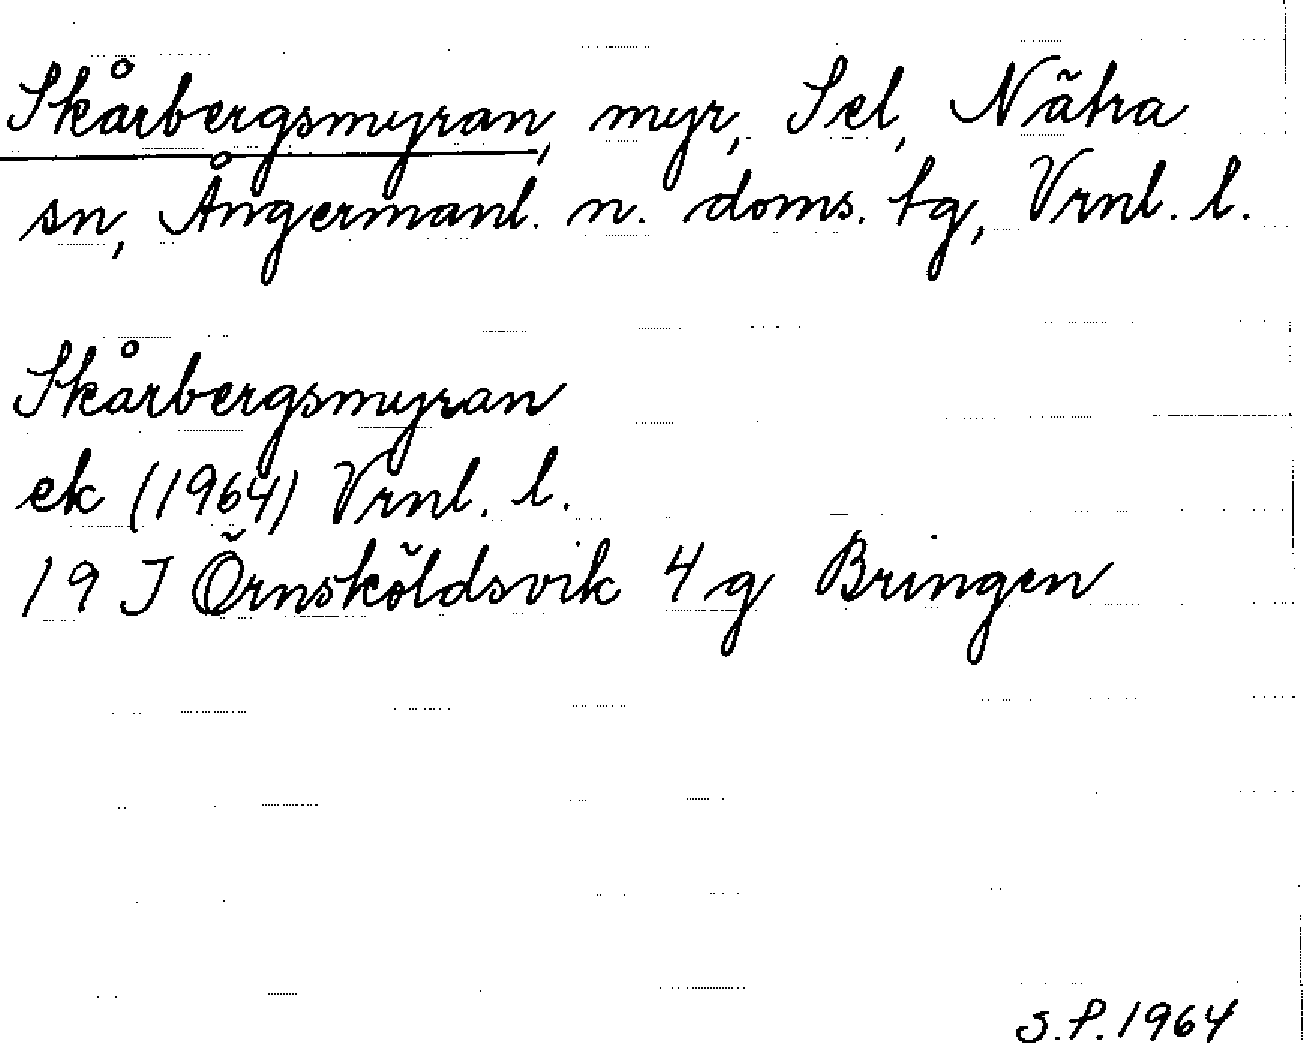 Skårbergsmyran, myr, Sel, Nätra
sn, Ångermanl. n. doms. tg, Vrnl. l.
Skårbergsmyran
ek (1964) Vrnl. l.
19 J Örnsköldsvik 4 g Bringen
S.P. 1964